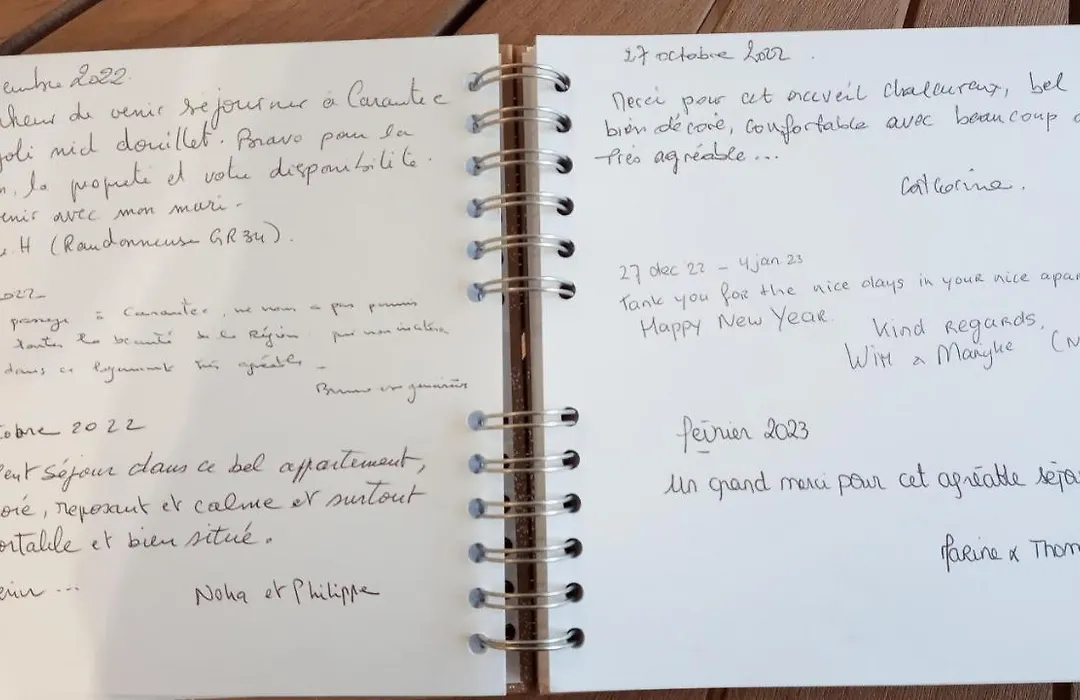 embre 2022
heur de venir séjourner à Carantec
joli nid douillet. Bravo pour la
la propreté et votre disponibilité.
enir avec mon mari.
H (Randonneuse GR34).
2022-
passage à Carantec, ne nous a pas permis
toutes la beauté de la Région
dans ce logement très agréable
Bruno
tobre 2022
ent séjour dans ce bel appartement,
oré, reposant et calme et surtout
ortable et bien situé.
enir ...
Noha et Philippe
27 octobre 2022.
Merci pour cet accueil chaleureux, bel
bien décoré, confortable avec beaucoup d
Très agréable...
Catherine.
27 dec 22 - 4 jan 23
Tank you for the nice days in your nice apar
Happy New Year.
Kind Regards,
Wim & Maryke (N
février 2023
Un grand merci pour cet agréable séjou
Marine & Thom